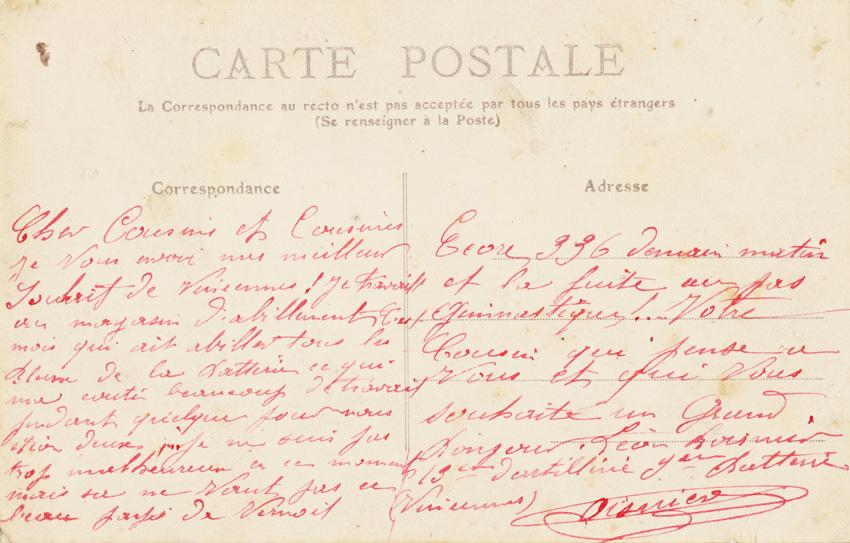 CARTE POSTALE
La Correspondance au recto n'est pas acceptée par tous les pays étrangers
(Se renseigner à la Poste)
Correspondance
Cher Cousins et Cousines
je vous envoi mes meilleur
Souhait de Vincennes ! Je travaill
au magasin d'abillement C'est
mois qui ait abiller tous les
Bleux de la Batterie ce qui
ma couté beaucoup de travail
pendant quelque jour nous
étion deux je ne suis pas
trop malheureux a ce moment
mais sa ne vaut pas ce
beau pays de Vernoil
Adresse
Ecore 996 demain matin
et la fuite au pas
Gymnastique !.. Votre
Cousin qui pense a
Vous et qui Vous
souhaite un Grand
Bonjour. Léon
13em d'artillerie 9em Batterie
(Vincennes)